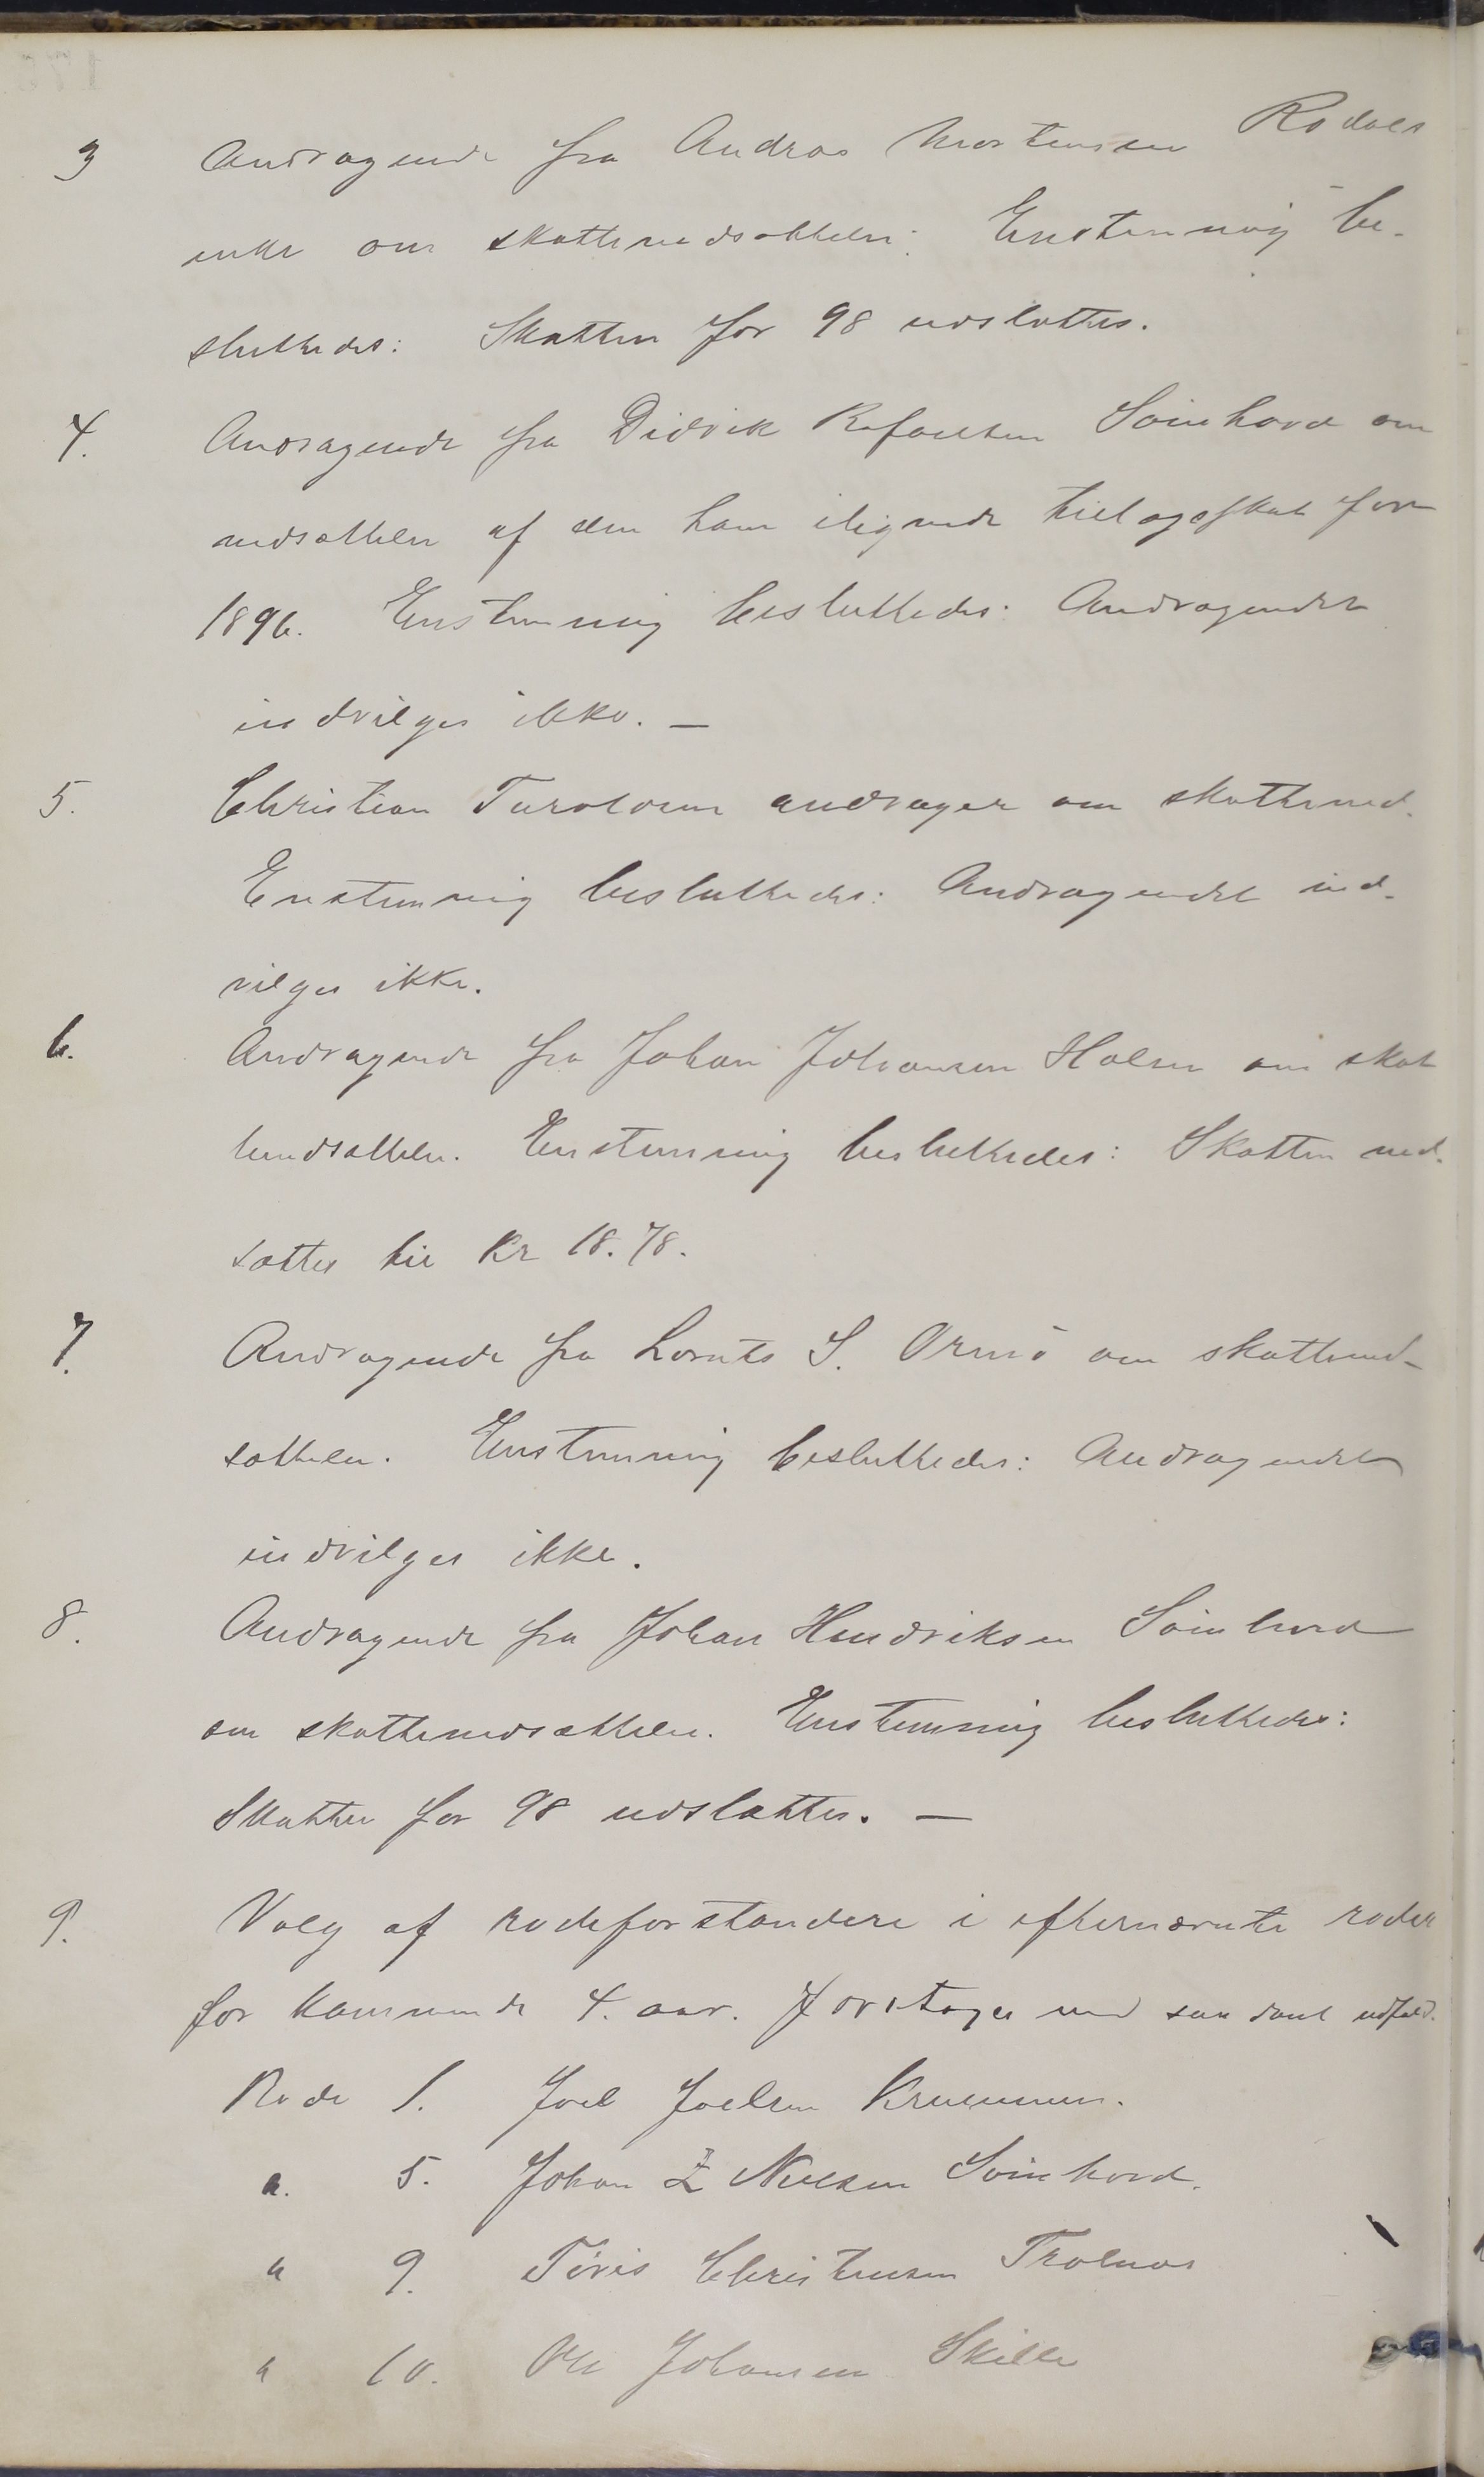 3 Andragende fra Andras Mortensen Rødaas
enke om skattenedsættelse: Enstemmig be-
sluttedes: Skatten for 98 udslættes.
4. Andragende fra Didrik Rafaelsen Søinhavd om
nedsættelse af den ham ilignede tillægsskat for
1896. Enstemmig besluttedes: Andragendet
indvilges ikke. —
5. Christian andrager om skattened.
Enstemmig besluttedes: Andragendet ind-
vilges ikke.
6. Andragende fra Johan Johansen Holm om skat
tenedsættelse. Enstemmig besluttedes: Skatten ned-
sættes til Kr 18.78.
7. Andragende fra Lornts S. Ormø om skattened-
sættelse. Enstemmig besluttedes: Andragendet
indvilges ikke.
8. Andragende fra Johan Hendriksen
om skattenedsættelse. Enstemmig besluttedes:
Skatten for 98 udslættes. —
9. Valg af rodeforstandere i efternævnte roder
for kommende 4. aar. Foretoges med saadant udfald.
Rode 1. Joel Joelsen
" 5. Johan Z Nielsen
" 9. Tøris Christensen
" 10. Ole Johansen Skille